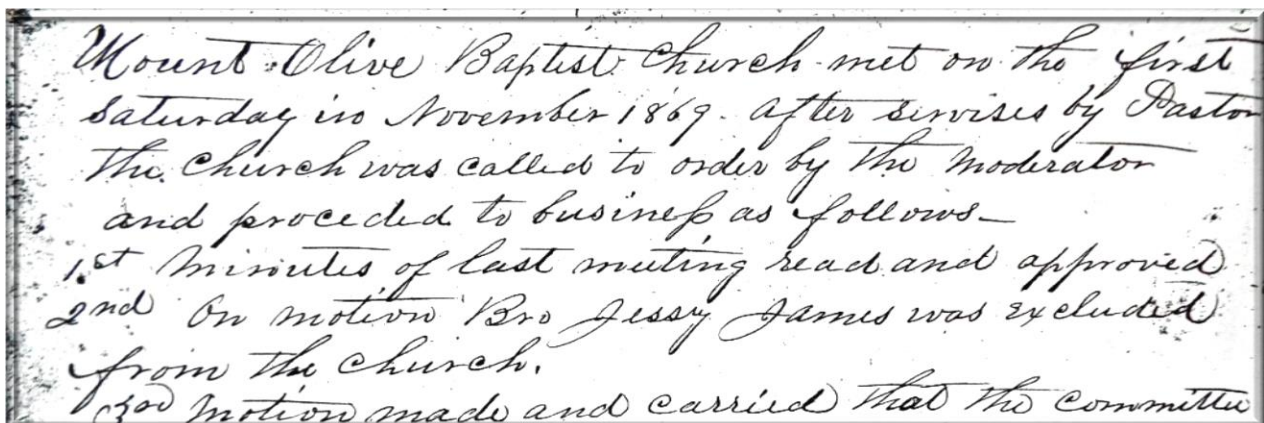 Mount Olive Baptist Church met on the first
Saturday in November 1869. after servises by Pastor
the Church was called to order by the Moderator
and proceded to business as follows—
1st Minutes of last meeting read and approved
2nd On motion Bro Jessy James was excluded
from the church.
3rd Motion made and carried that the committee